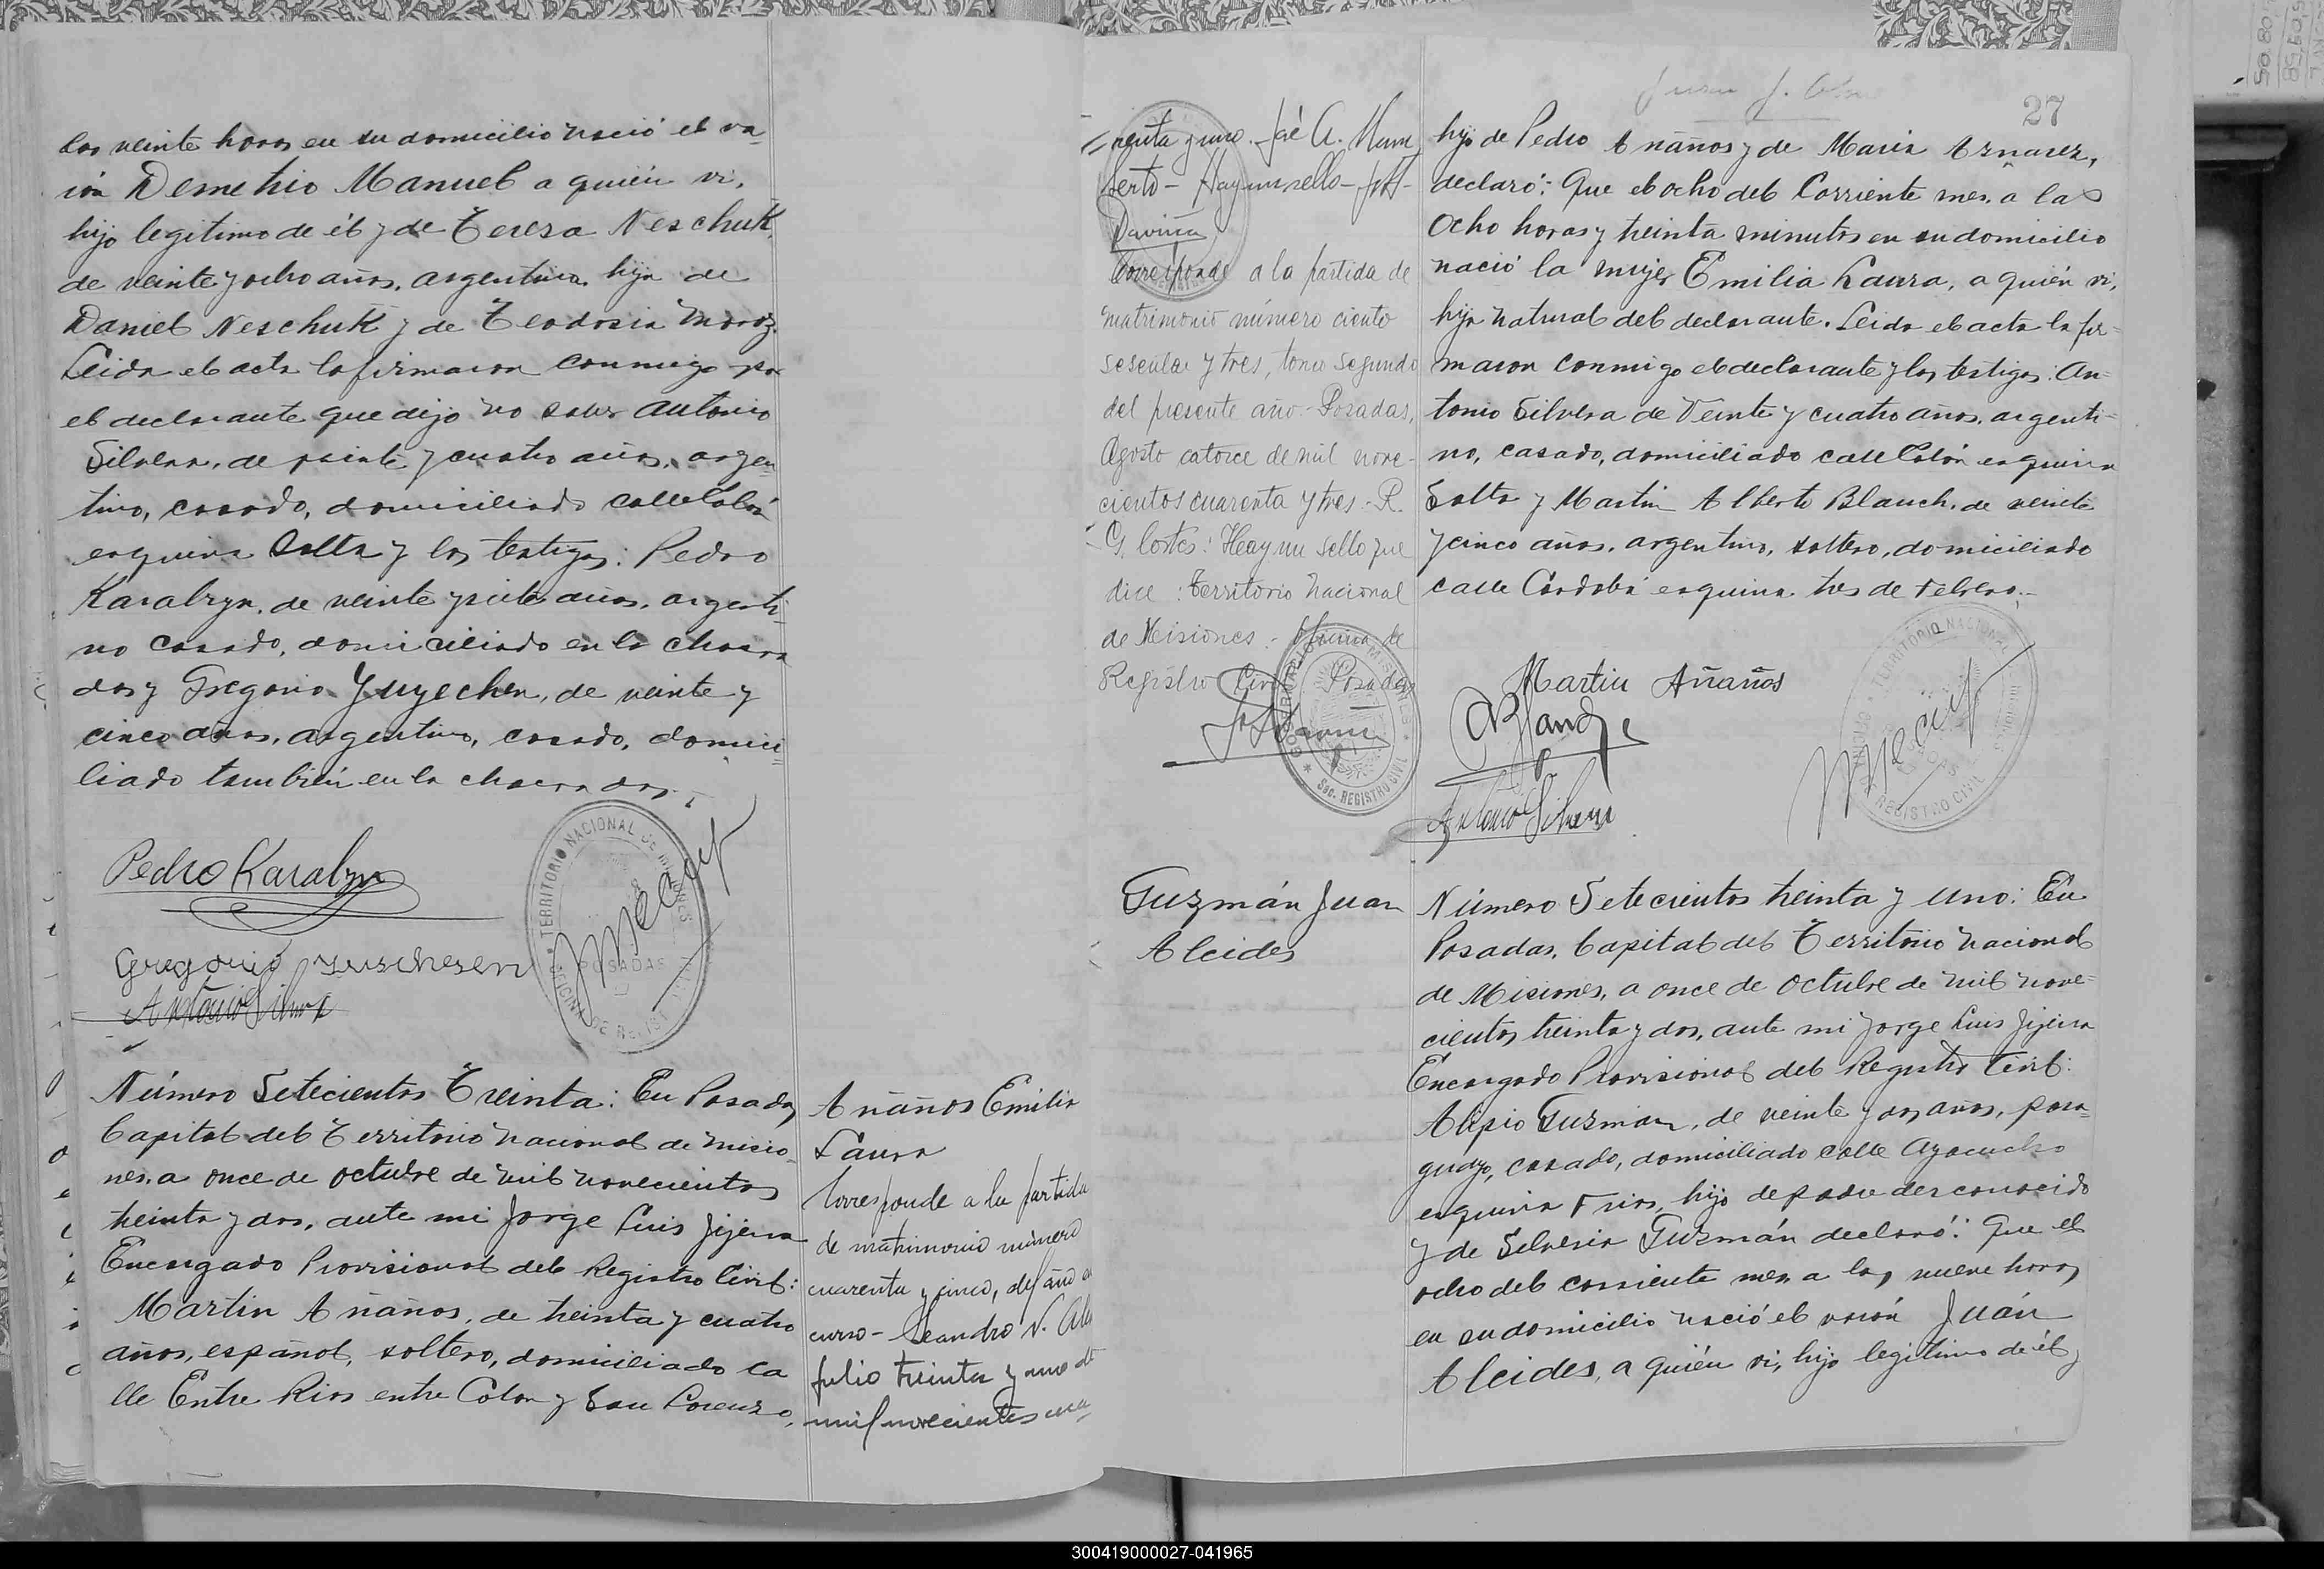 las veinte horas en su domicilio nació el va-
rón Demetrio Manuel a quién vi,
hijo legitimo de él y de Teresa Neschuk,
de veinte y ocho años, argentina, hija de
Daniel Neschuk y de Teodosia Moroz.
Leida el acta la firmaron conmigo por
el declarante que dijo no saber Antonio
Silvera, de veinte y cuatro años, argen
tino, casado, domiciliado calle Colón
esquina Salta y los testigos: Pedro
Karabyn, de veinte y siete años, argenti-
no casado, domiciliado en la chacra
dos y Gregorio Yuyechen, de veinte y
cinco años, argentino, casado, domici
liado también en la chacra dos.-
Pedro Karabyn
Gregorio Yuschesen
Antonio Silvera
TERRITORIO NACIONAL DE MISIONES
POSADAS
OFICINA DE REGIST
Número Setecientos Treinta: En Posadas,
Capital del Territorio Nacional de Misio-
nes, a once de octubre de mil novecientos
treinta y dos, ante mi Jorge Luis Jijena
Encargado Provisional del Registro Civil:
Martin Añaños, de treinta y cuatro
años, español, soltero, domiciliado ca
lle Entre Rios entre Colon y San Lorenzo,
Añaños Emilia
Laura
Corresponde a la partida
de matrimonio número
cuarenta y cinco, del año en
curso - Leandro N. Alem
julio treinta y uno de
mil novecientos cua
27
renta y uno. José A.
berto - Hay un sello -
Daviña
Corresponde a la partida de
matrimonio número ciento
sesenta y tres, tomo segundo
del presente año.- Posadas,
Agosto catorce de mil nove-
cientos cuarenta y tres.- R.
G. Cortés: Hay un sello que
dice: Territorio Nacional
de Misiones.- Oficina de
Registro Civil Posadas
GOBERNACION MISIONES
Sec. REGISTRO CIVIL
hijo de Pedro Añaños y de Maria Aznarez,
declaró: Que el ocho del Corriente mes, a las
Ocho horas y treinta minutos en su domicilio
nació la mujer Emilia Laura, a quién vi,
hija natural del declarante. Leida el acta la fir-
maron conmigo el declarante y los testigos: An-
tonio Silvera de Veinte y cuatro años, argenti-
no, casado, domiciliado calle Colón esquina
Salta y Martin Alberto Blanch, de veinte
y cinco años, argentino, soltero, domiciliado
calle Córdoba esquina tres de Febrero.-
Martin Añaños
Antonio Silvera
TERRITORIO NACIONAL
REGISTRO CIVIL
Guzmán Juan
Alcides
Número Setecientos treinta y uno: En
Posadas, Capital del Territorio Nacional
de Misiones, a once de octubre de mil nove-
cientos treinta y dos, ante mi Jorge Luis Jijena
Encargado Provisional del Registro Civil:
Alipio Guzman, de veinte y dos años, para-
guayo, casado, domiciliado calle Ayacucho
esquina Frias, hijo de padre desconocido
y de Silveria Guzmán declaró: Que el
ocho del corriente mes, a las nueve horas,
en su domicilio nació el varón Juán
Alcides, a quién vi, hijo legitimo de él y
300419000027-041965